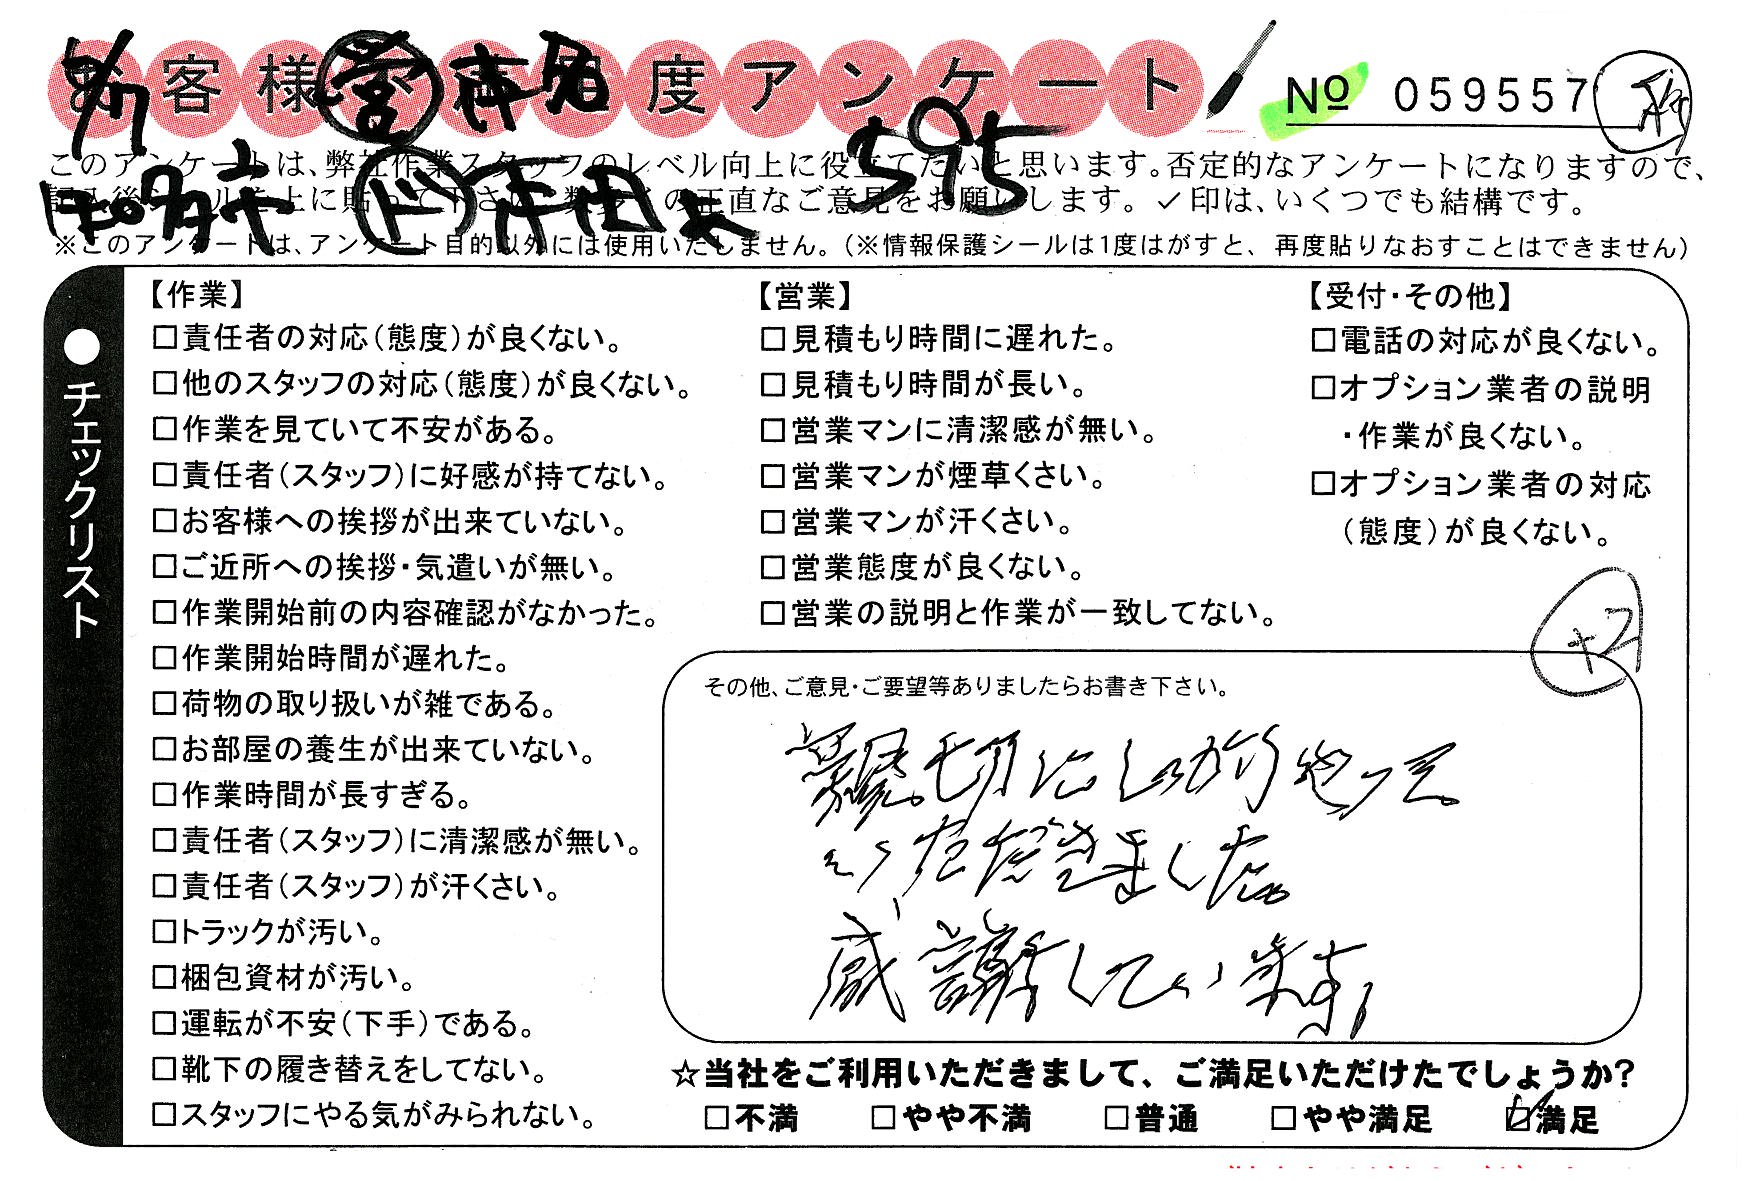 お客様満足度アンケート
№ 059557
S95
このアンケートは、弊社作業スタッフのレベル向上に役立てたいと思います。否定的なアンケートになりますので、
記入後シールを上に貼って下さい。数多くの正直なご意見をお願いします。✓印は、いくつでも結構です。
※このアンケートは、アンケート目的以外には使用いたしません。(※情報保護シールは1度はがすと、再度貼りなおすことはできません)
●チェックリスト
【作業】
□責任者の対応(態度)が良くない。
□他のスタッフの対応(態度)が良くない。
□作業を見ていて不安がある。
□責任者(スタッフ)に好感が持てない。
□お客様への挨拶が出来ていない。
□ご近所への挨拶・気遣いが無い。
□作業開始前の内容確認がなかった。
□作業開始時間が遅れた。
□荷物の取り扱いが雑である。
□お部屋の養生が出来ていない。
□作業時間が長すぎる。
□責任者(スタッフ)に清潔感が無い。
□責任者(スタッフ)が汗くさい。
□トラックが汚い。
□梱包資材が汚い。
□運転が不安(下手)である。
□靴下の履き替えをしてない。
□スタッフにやる気がみられない。
【営業】
□見積もり時間に遅れた。
□見積もり時間が長い。
□営業マンに清潔感が無い。
□営業マンが煙草くさい。
□営業マンが汗くさい。
□営業態度が良くない。
□営業の説明と作業が一致してない。
【受付・その他】
□電話の対応が良くない。
□オプション業者の説明
・作業が良くない。
□オプション業者の対応
(態度)が良くない。
+2
その他、ご意見・ご要望等ありましたらお書き下さい。
親切にしっかりやって
いただきました。
感謝しています。
☆当社をご利用いただきまして、ご満足いただけたでしょうか?
□不満 □やや不満 □普通 □やや満足 ☑満足